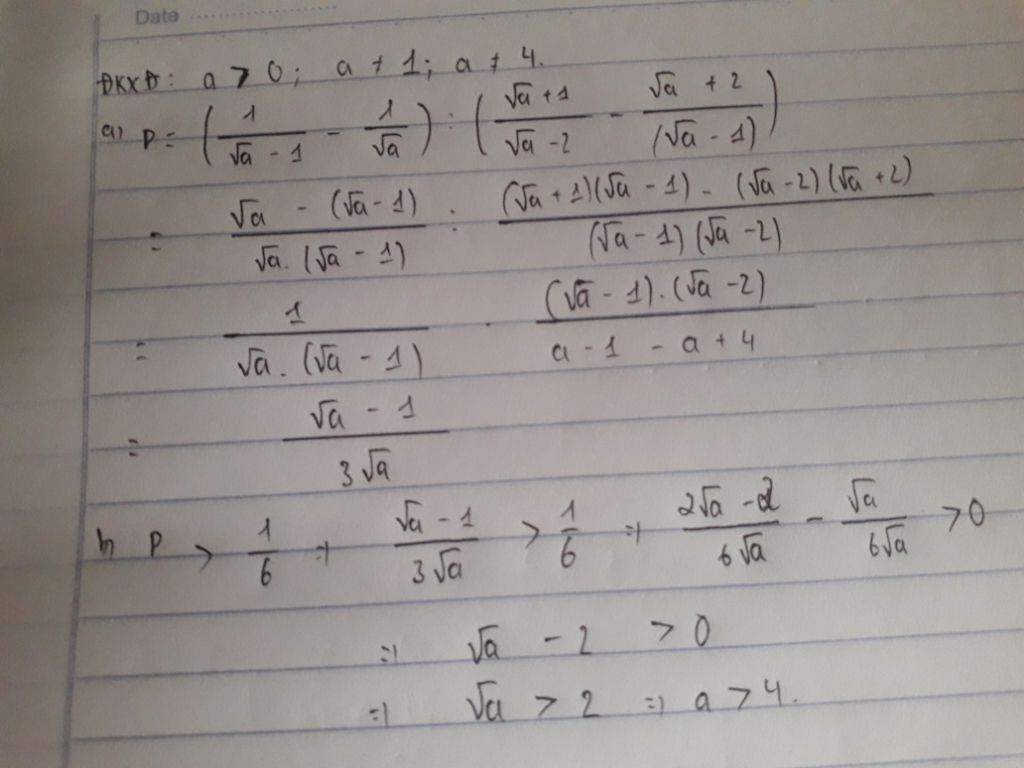 Date ..................
ĐKXĐ: a > 0; a ≠ 1; a ≠ 4.
a) P = (1/(√a - 1) - 1/√a) : ((√a + 1)/(√a - 2) - (√a + 2)/(√a - 1))
= (√a - (√a - 1))/(√a. (√a - 1)) : ((√a + 1)(√a - 1) - (√a - 2)(√a + 2))/((√a - 1)(√a - 2))
= 1/(√a. (√a - 1)) . ((√a - 1).(√a - 2))/(a - 1 - a + 4)
= (√a - 1)/(3√a)
b) P > 1/6 => (√a - 1)/(3√a) > 1/6 => (2√a - 2)/(6√a) - √a/(6√a) > 0
=> √a - 2 > 0
=> √a > 2 => a > 4.